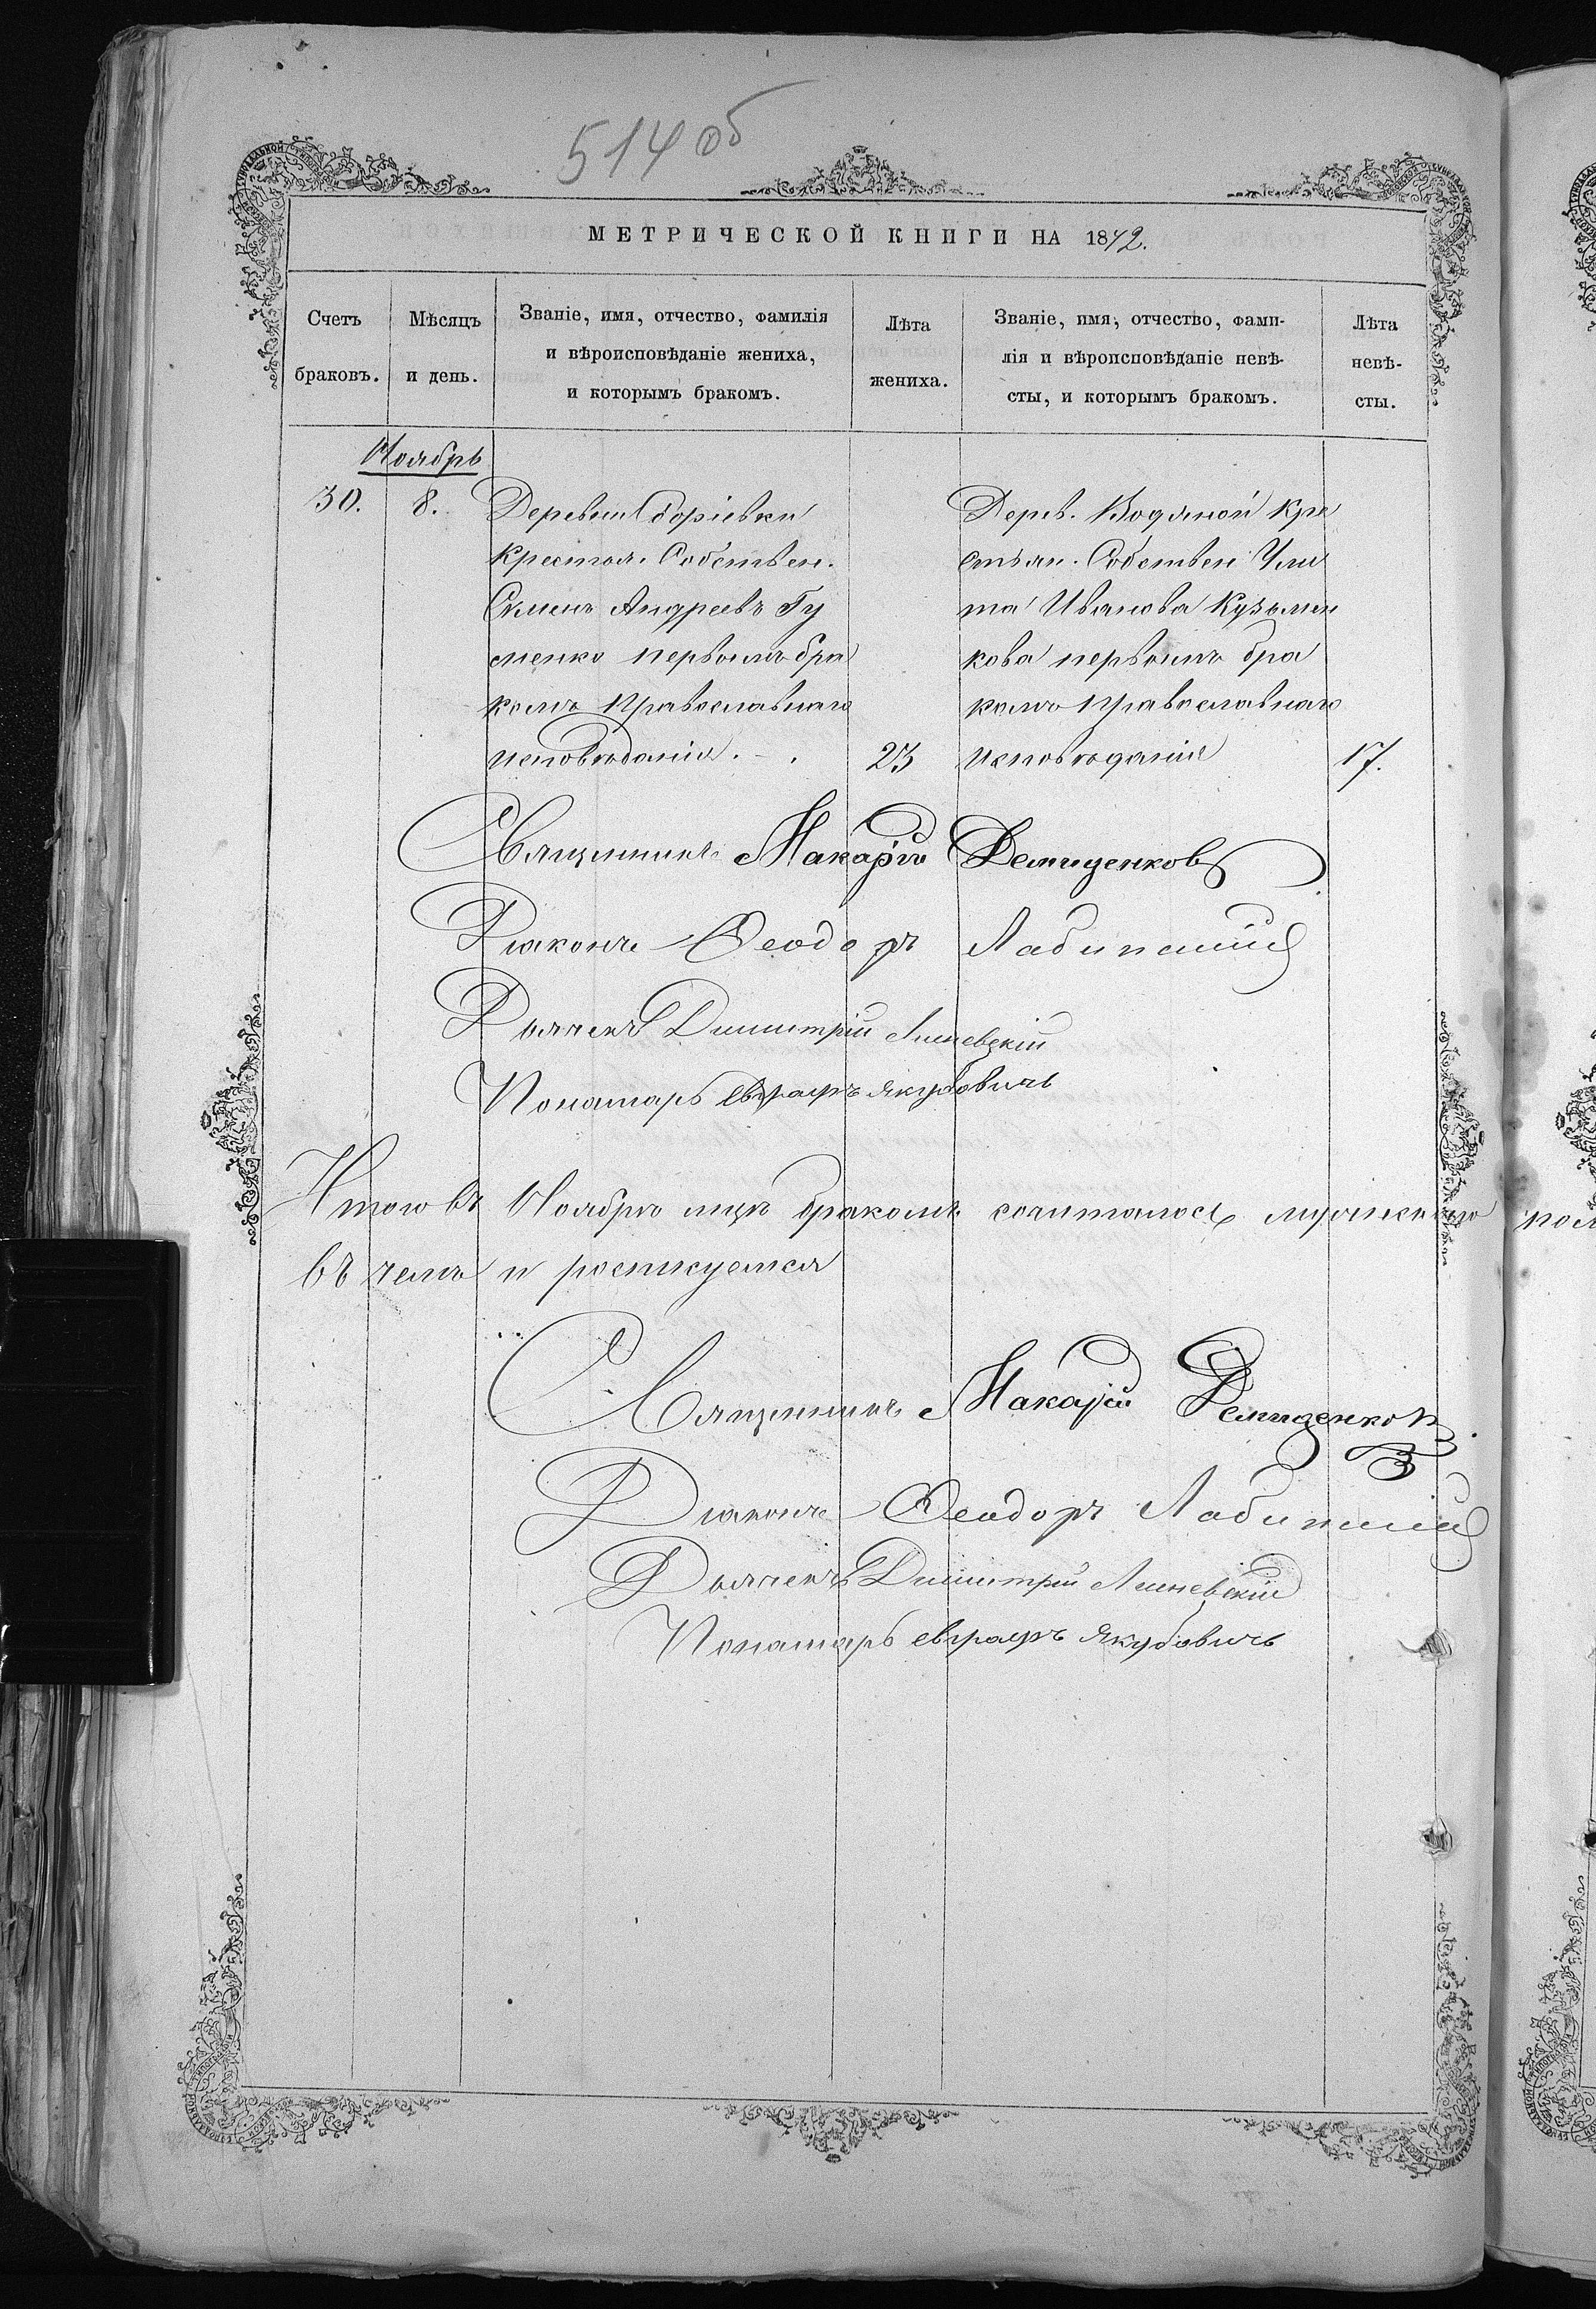 514 об
МЕТРИЧЕСКОЙ КНИГИ НА 1872.
Счетъ браковъ.
Мѣсяцъ и день.
Званіе, имя, отчество, фамилія
и вѣроисповѣданіе жениха,
и которымъ бракомъ.
Лѣта жениха.
Званіе, имя, отчество, фами-
лія и вѣроисповѣданіе невѣ-
сты, и которымъ бракомъ.
Лѣта невѣ-
сты.
Ноябрь
30. 8.
Деревни
Крестья. Собствен.
Семенъ Андреевъ Гу
менко первымъ бра
комъ Православнаго
исповѣданія. 23
Дерев. Водяной Кре
стьян. Собствен Ули
та Иванова Кузьмен
кова первымъ бра
комъ Православнаго
исповѣданія 17.
Священникъ Макарій Демиденковъ
Діаконъ Ѳеодоръ
Дьячекъ Димитрій
Пономарь Евграфъ Якубовичь
Итого въ Ноябрѣ мцѣ бракомъ сочиталось мужескаго пол
въ чемъ и росписуемся
Священникъ Макарій Демиденковъ
Діаконъ Ѳеодоръ
Дьячекъ Димитрій
Пономарь Евграфъ Якубовичь